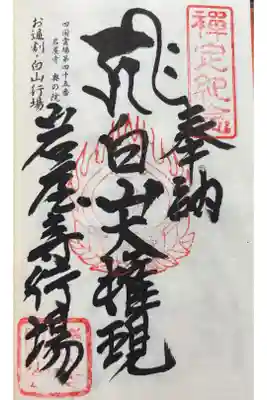 禪定記念
奉納
白山大権現
岩屋寺行場
四国霊場第四十五番
岩屋寺 奥の院
お逼割・白山行場